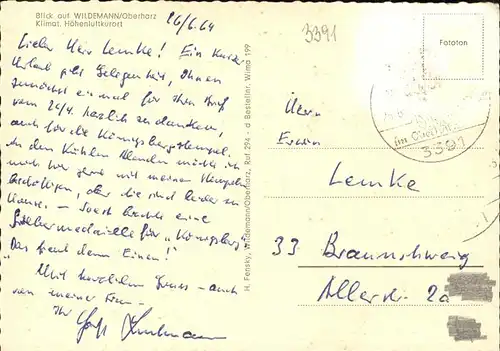 Blick auf WILDEMANN/Oberharz
Klimat. Höhenluftkurort
26/6.64
3391
Fototon
Lieber Herr Lemke! Ein kurzer
Urlaub gibt Gelegenheit, Ihnen
zunächst einmal für Ihren Brief
vom 26/4. herzlich zu danken,
auch für die Königsberg-Stempel.
An den kühlen Abenden möchte ich
mich gern mit meinen Stempeln
beschäftigen, aber die sind leider zu
Hause. – Soest brachte eine
Silbermedaille für „Königsberg".
Das freut denn Einen!
Mit herzlichem Gruss – auch
von meiner Frau –
Ihr
H. Fensky, Wildemann/Oberharz, Ruf 294 - d Bestellnr. Wima 199
Herrn
Erwin
Lemke
33 Braunschweig
Allerstr. 2a
im Oberharz
3391